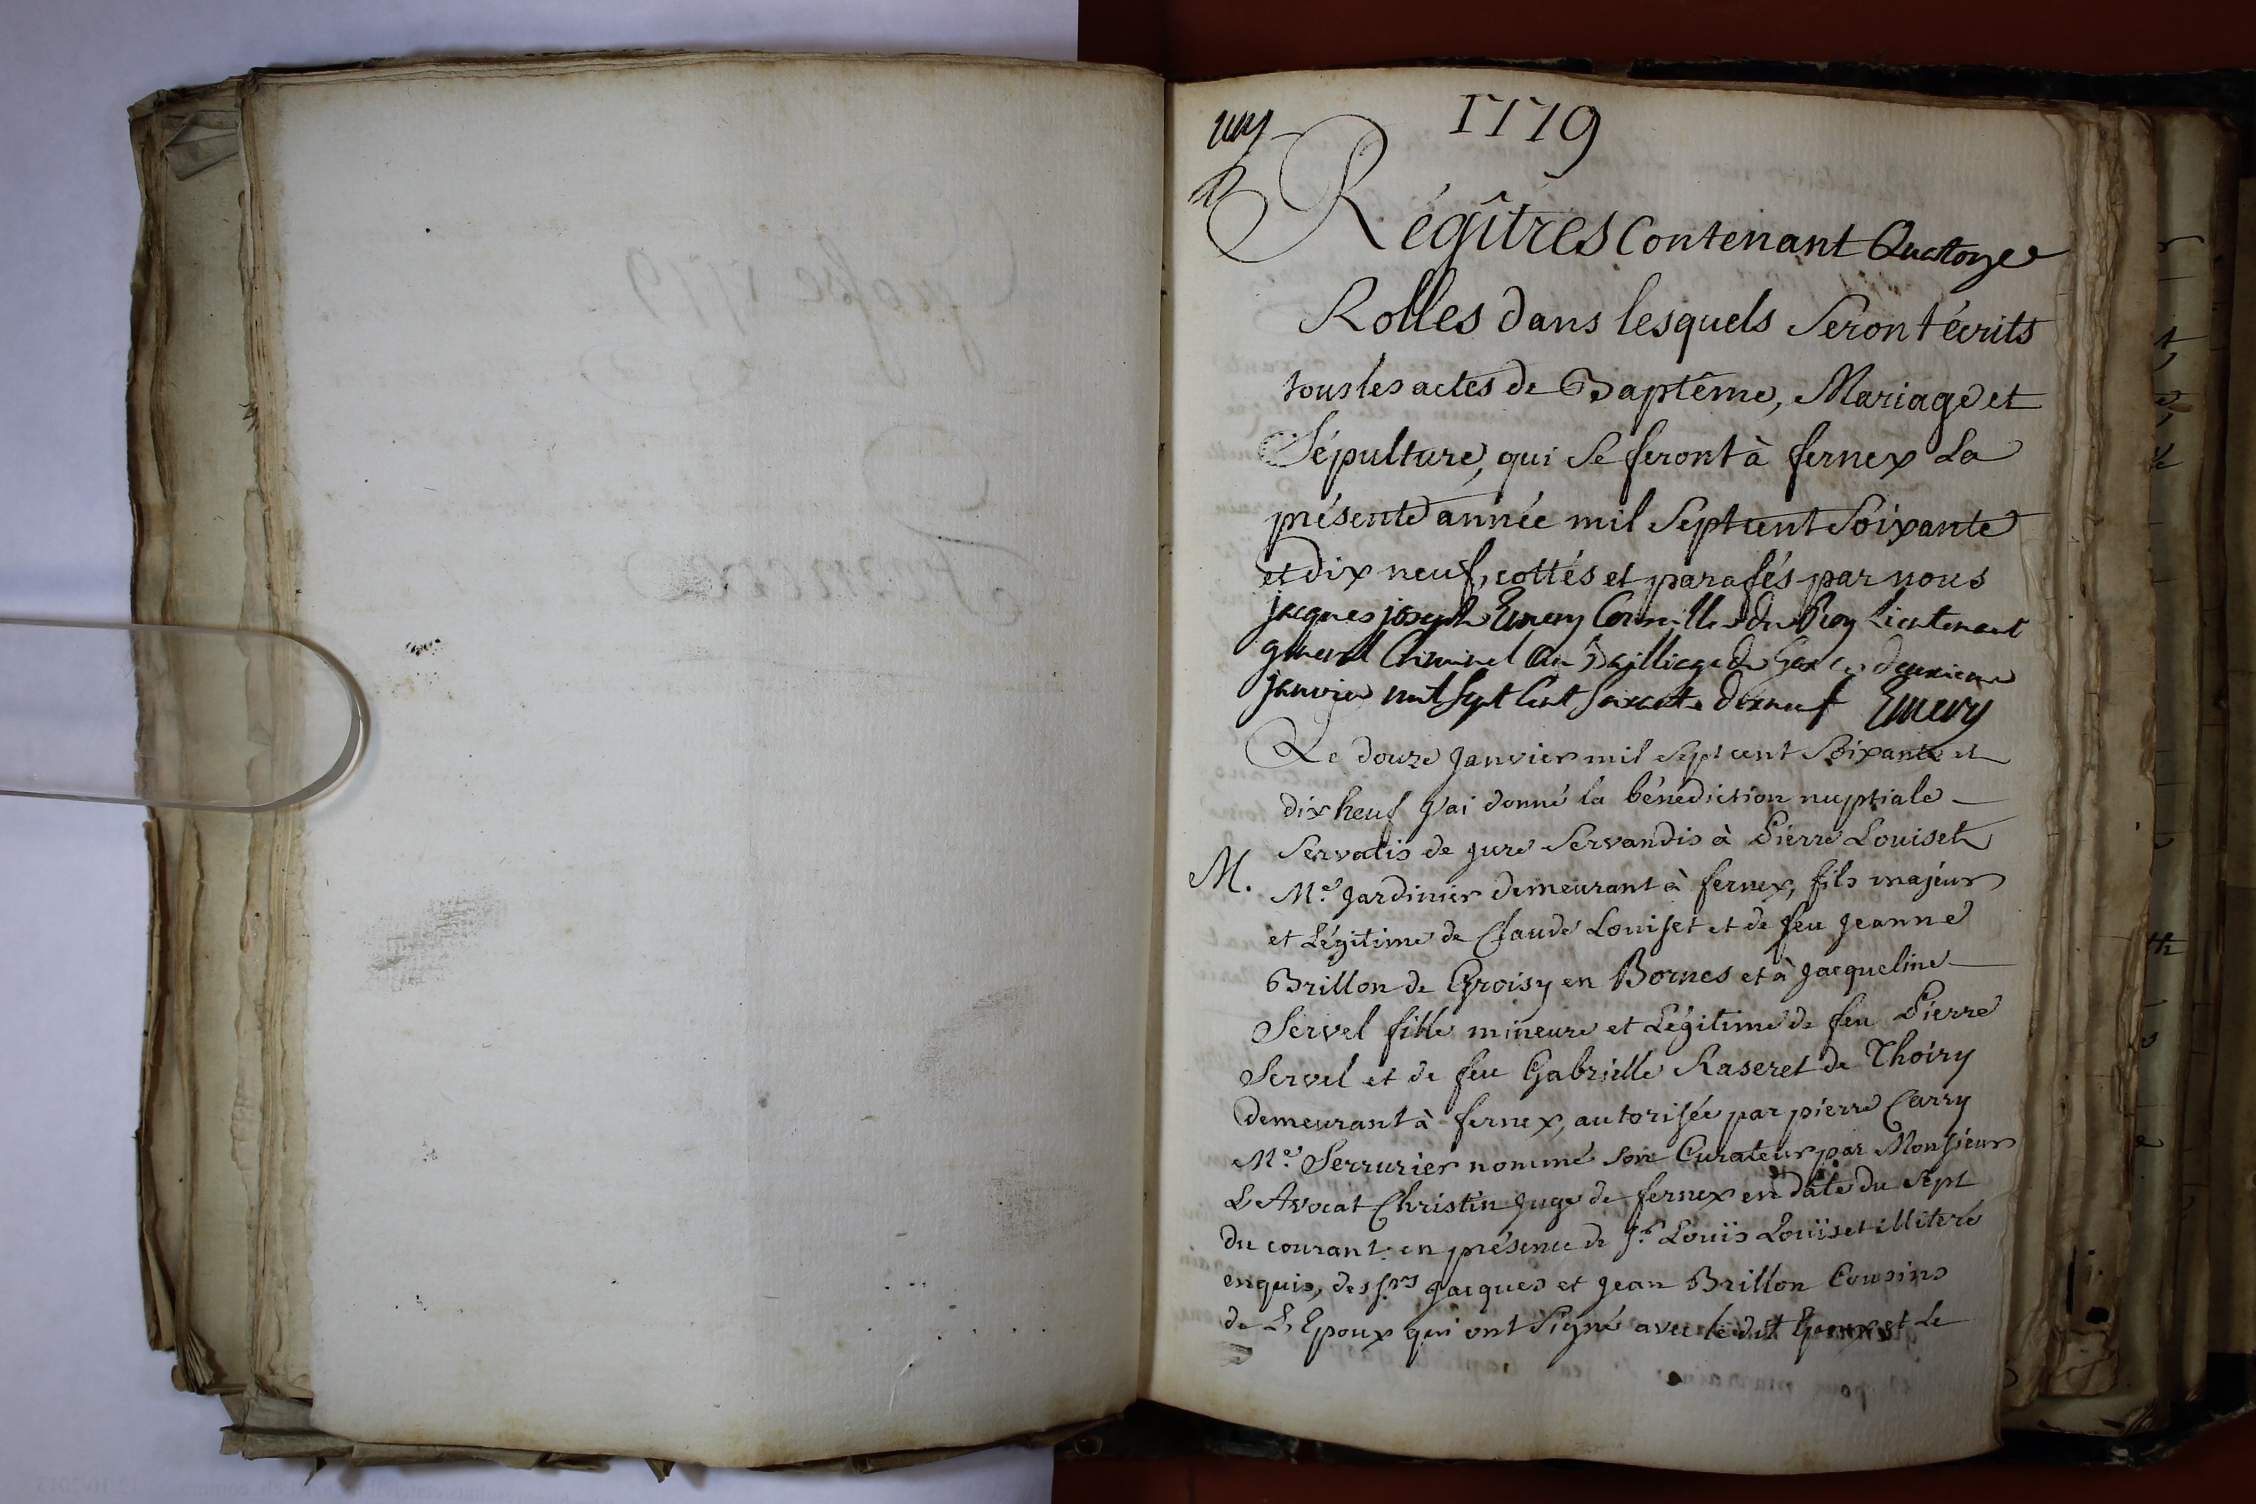 1779
Régîtres Contenant Quatorze
Rolles dans lesquels Seront écrits
tous les actes de Baptême, Mariage et
Sépulture, qui se feront à fernex La
présente année mil Sept cent Soixante
et dix neuf, cottés et parafés par nous
jacques joseph Emery Conseiller du Roy Lieutenant
general Criminel au Bailliage de Gex ce deuxieme
janvier mil sept Cent soixante dixneuf Emery
Le douze Janvier mil Sept cent Soixante et
dix neuf J'ai donné la bénédiction nuptiale
Servatis de jure Servandis à Pierre Louiset
M. M.e Jardinier demeurant à fernex, fils majeur
et Légitime de Claude Louiset et de feu Jeanne
Brillon de Groisy en Bornes et à Jacqueline
Servel fille mineure et Légitime de feu Pierre
Servel et de feu Gabrielle Raseret de Thoiry
demeurant à fernex, autorisée par pierre Carry
M.e Serrurier nommé son Curateur par Monsieur
L'Avocat Christin Juge de fernex en date du Sept
du courant: en présence de Louïs Louïset illiteré
enquis, des Jacques et Jean Brillon Cousins
de L'Epoux qui ont Signé avec le dit Epoux et Le